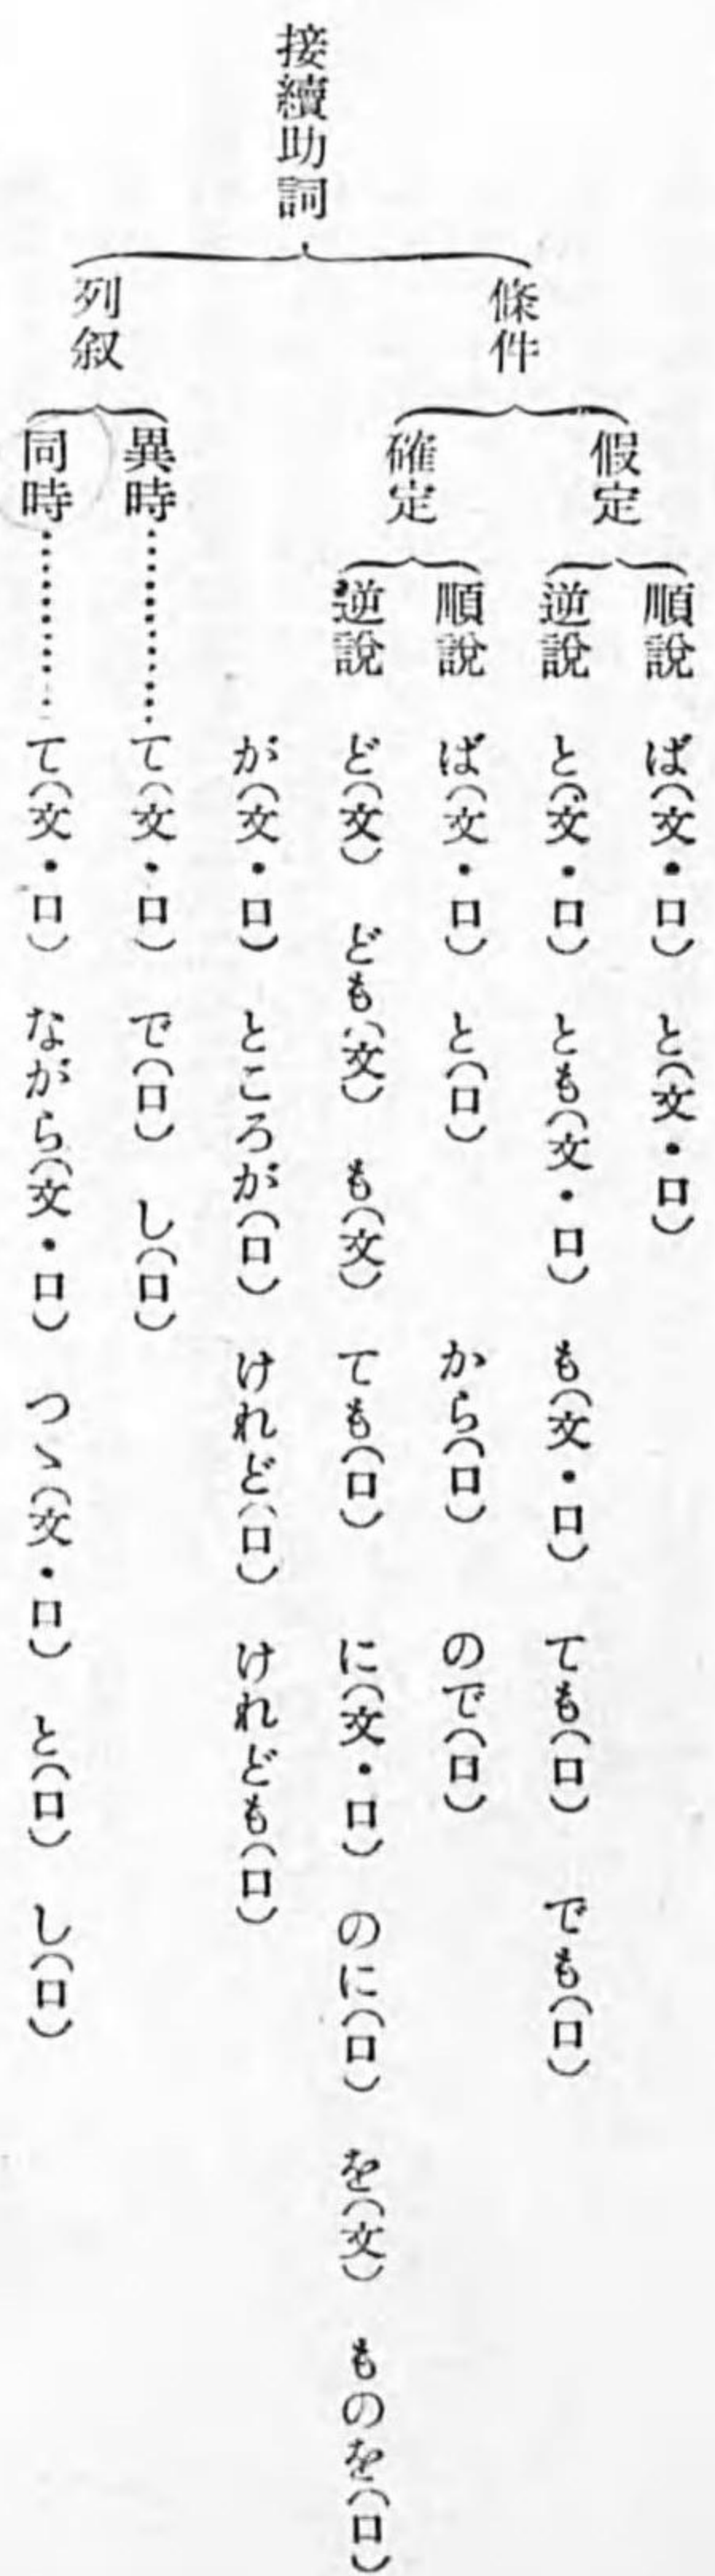 接續助詞
條件
假定
順說 ば(文・口) と(文・口)
逆說 と(文・口) とも(文・口) も(文・口) ても(口) でも(口)
確定
順說 ば(文・口) と(口) から(口) ので(口)
逆說 ど(文) ども(文) も(文) ても(口) に(文・口) のに(口) を(文) ものを(口)
が(文・口) ところが(口) けれど(口) けれども(口)
列叙
異時…………て(文・口) で(口) し(口)
同時…………て(文・口) ながら(文・口) つゝ(文・口) と(口) し(口)